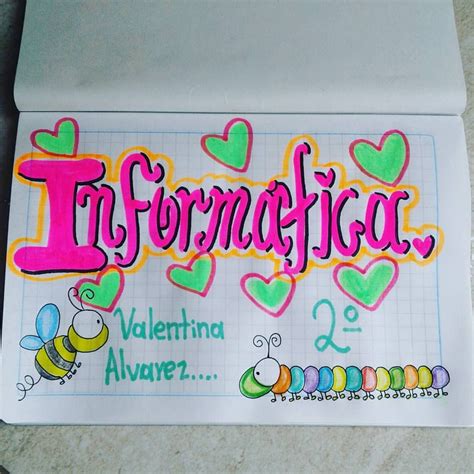 Informática.
Valentina
2º
Alvarez....